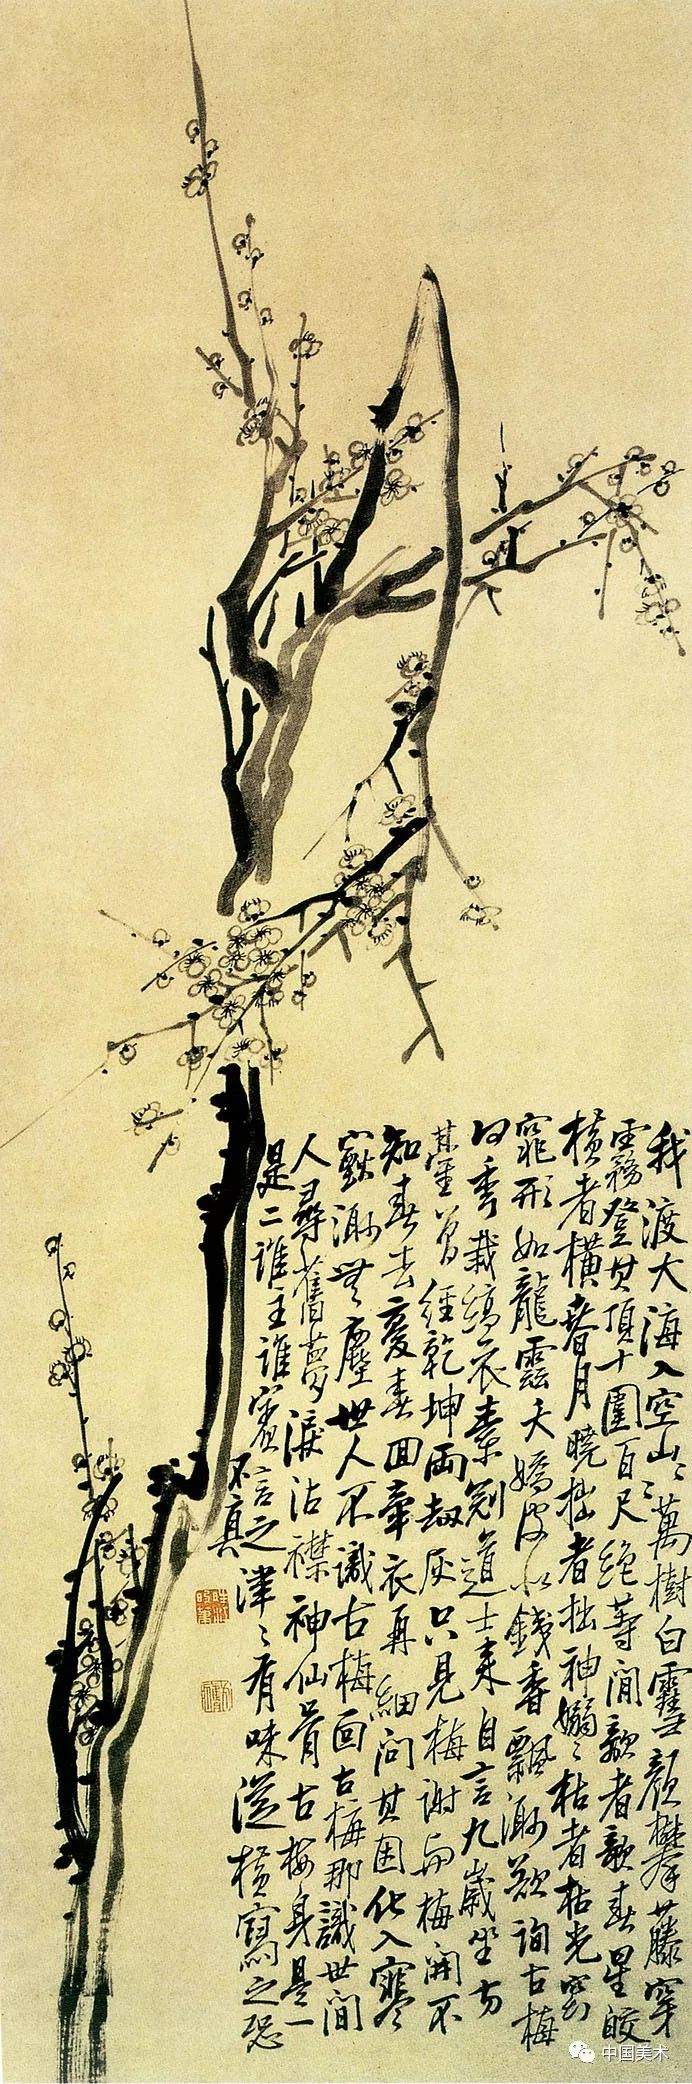 我渡大海入空山〻萬樹白雪顏攀藤穿
霧登其頂十圍百尺絶等閒欹者欹春星皎
橫者橫春月曉拙者拙神嫋〻枯者枯光窅
窕形如龍靈夭嬌皮似錢香飄渺欲詢古梅
何季栽縞衣素冠道士來自言九歲坐方
臺曾經乾坤兩劫灰只見梅謝與梅開不
知春去復春回牽衣再細問其因化入寥
渺無塵世人不識古梅面古梅那識世間
人尋舊夢淚沾襟神仙骨古梅身是一
是二誰主誰賓言之津〻有味從橫寫之恐
不真
中国美术